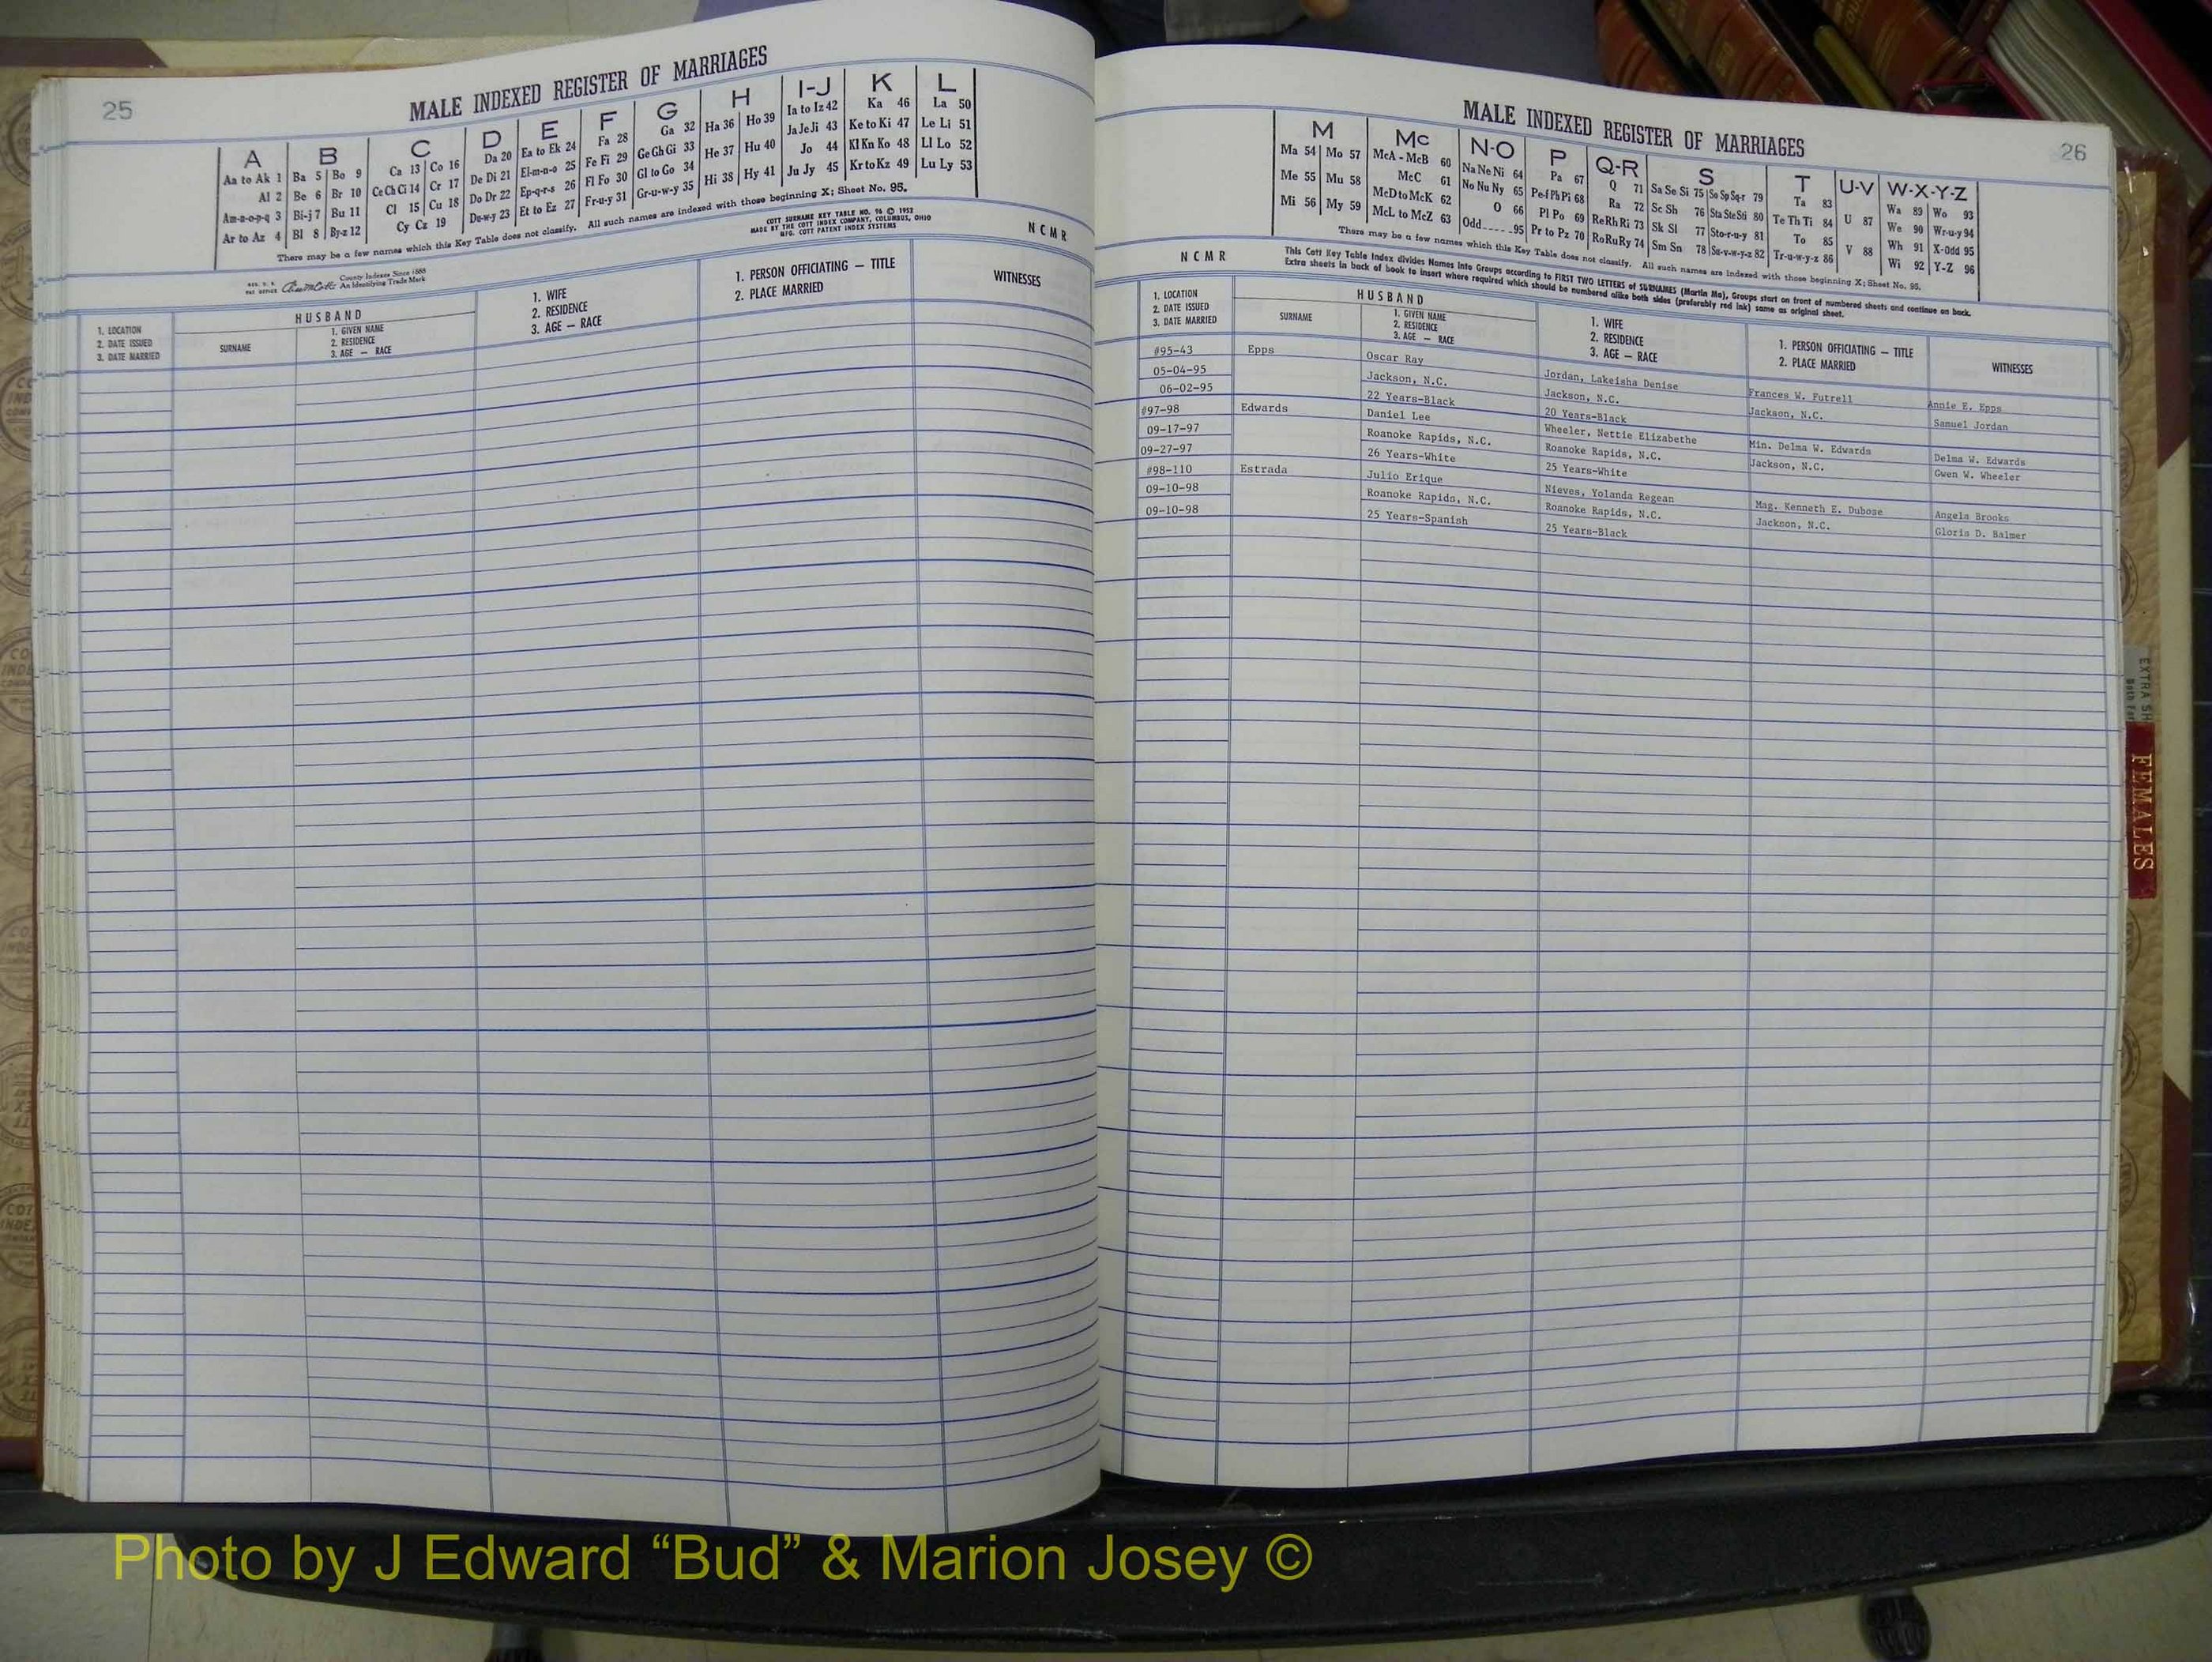 25
MALE INDEXED REGISTER OF MARRIAGES
A B C D E F G H I-J K L
Aa to Ak 1 Ba 5 Bo 9 Ca 13 Co 16 Da 20 Ea to Ek 24 Fa 28 Ga 32 Ha 36 Ho 39 Ia to Iz 42 Ka 46 La 50
Al 2 Be 6 Br 10 Ce Ch Ci 14 Cr 17 De Di 21 El-m-n-o 25 Fe Fi 29 Ge Gh Gi 33 He 37 Hu 40 Ja Je Ji 43 Ke to Ki 47 Le Li 51
Am-n-o-p-q 3 Bi-j 7 Bu 11 Cl 15 Cu 18 Do Dr 22 Ep-q-r-s 26 Fl Fo 30 Gl to Go 34 Hi 38 Hy 41 Jo 44 Kl Kn Ko 48 Ll Lo 52
Ar to Az 4 Bl 8 By-z 12 Cy Cz 19 Du-w-y 23 Et to Ez 27 Fr-u-y 31 Gr-u-w-y 35 Ju Jy 45 Kr to Kz 49 Lu Ly 53
There may be a few names which this Key Table does not classify. All such names are indexed with those beginning X; Sheet No. 95.
COTT SURNAME KEY TABLE NO. 96 © 1952
MADE BY THE COTT INDEX COMPANY, COLUMBUS, OHIO
MFG. COTT PATENT INDEX SYSTEMS
N C M R
County Indexes Since 1888
An Identifying Trade Mark
1. LOCATION
2. DATE ISSUED
3. DATE MARRIED
HUSBAND
SURNAME
1. GIVEN NAME
2. RESIDENCE
3. AGE — RACE
1. WIFE
2. RESIDENCE
3. AGE — RACE
1. PERSON OFFICIATING — TITLE
2. PLACE MARRIED
WITNESSES
MALE INDEXED REGISTER OF MARRIAGES
26
M Mc N-O P Q-R S T U-V W-X-Y-Z
Ma 54 Mo 57 McA - McB 60 Na Ne Ni 64 Pa 67 Q 71 Sa Se Si 75 So Sp Sq-r 79 Ta 83 U 87 Wa 89 Wo 93
Me 55 Mu 58 McC 61 No Nu Ny 65 Pe-f Ph Pi 68 Ra 72 Sc Sh 76 Sta Ste Sti 80 Te Th Ti 84 V 88 We 90 Wr-u-y 94
Mi 56 My 59 McD to McK 62 O 66 Pl Po 69 Re Rh Ri 73 Sk Sl 77 Sto-r-u-y 81 To 85 Wh 91 X-Odd 95
McL to McZ 63 Odd 95 Pr to Pz 70 Ro Ru Ry 74 Sm Sn 78 Su-v-w-y-z 82 Tr-u-w-y-z 86 Wi 92 Y-Z 96
There may be a few names which this Key Table does not classify. All such names are indexed with those beginning X; Sheet No. 95.
N C M R
This Cott Key Table Index divides Names into Groups according to FIRST TWO LETTERS of SURNAMES (Martin Ma), Groups start on front of numbered sheets and continue on back.
Extra sheets in back of book to insert where required which should be numbered alike both sides (preferably red ink) same as original sheet.
1. LOCATION
2. DATE ISSUED
3. DATE MARRIED
HUSBAND
SURNAME
1. GIVEN NAME
2. RESIDENCE
3. AGE — RACE
1. WIFE
2. RESIDENCE
3. AGE — RACE
1. PERSON OFFICIATING — TITLE
2. PLACE MARRIED
WITNESSES
#95-43 Epps Oscar Ray Jordan, Lakeisha Denise Frances W. Futrell Annie E. Epps
05-04-95 Jackson, N.C. Jackson, N.C. Jackson, N.C. Samuel Jordan
06-02-95 22 Years-Black 20 Years-Black
#97-98 Edwards Daniel Lee Wheeler, Nettie Elizabethe Min. Delma W. Edwards Delma W. Edwards
09-17-97 Roanoke Rapids, N.C. Roanoke Rapids, N.C. Jackson, N.C. Gwen W. Wheeler
09-27-97 26 Years-White 25 Years-White
#98-110 Estrada Julio Erique Nieves, Yolanda Regean Mag. Kenneth E. Dubose Angela Brooks
09-10-98 Roanoke Rapids, N.C. Roanoke Rapids, N.C. Jackson, N.C. Gloria D. Balmer
09-10-98 25 Years-Spanish 25 Years-Black
EXTRA SH
FEMALES
Photo by J Edward “Bud” & Marion Josey ©